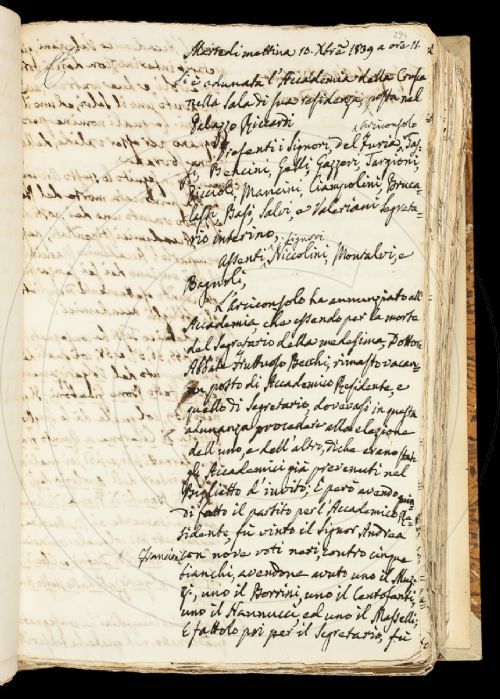 296
Martedì mattina 10. Xbre 1839 a ore 11.
Si è adunata l'Accademia della Crusca
nella Sala di sua residenza, posta nel
Palazzo Riccardi
Arciconsolo
Presenti i Signori, del Furia, Taf-
fi, Bencini, Gelli, Gazzeri, Targioni,
Riccioli, Mancini, Ciampolini, Bruca-
lassi, Basi, Salvi, e Valeriani Segreta-
rio interino;
Signori
Assenti, Niccolini, Monsalvi, e
Bagnoli,
L'Arciconsolo ha annunziato all'
Accademia, che essendo per la morte
del Segretario della medesima, Dottore
Abbate Fruttuoso Becchi, rimasto vacan-
un posto di Accademico Residente, e
quello di Segretario, dovevasi in questa
adunanza procedere alla elezione
dell'uno, e dell'altro, di che erano stati
gli Accademici già prevenuti nel
Biglietto d'invito; E però avendo
di fatto il partito per l'Accademico Re-
sidente, fù vinto il Signor Andrea
Francioni
con nove voti neri, contro cinque
bianchi, avendone avuto uno il Muz-
zi, uno il Borrini, uno il Centofanti,
uno il Nannucci, ed uno il Masselli;
E fattolo poi per il Segretario, fù